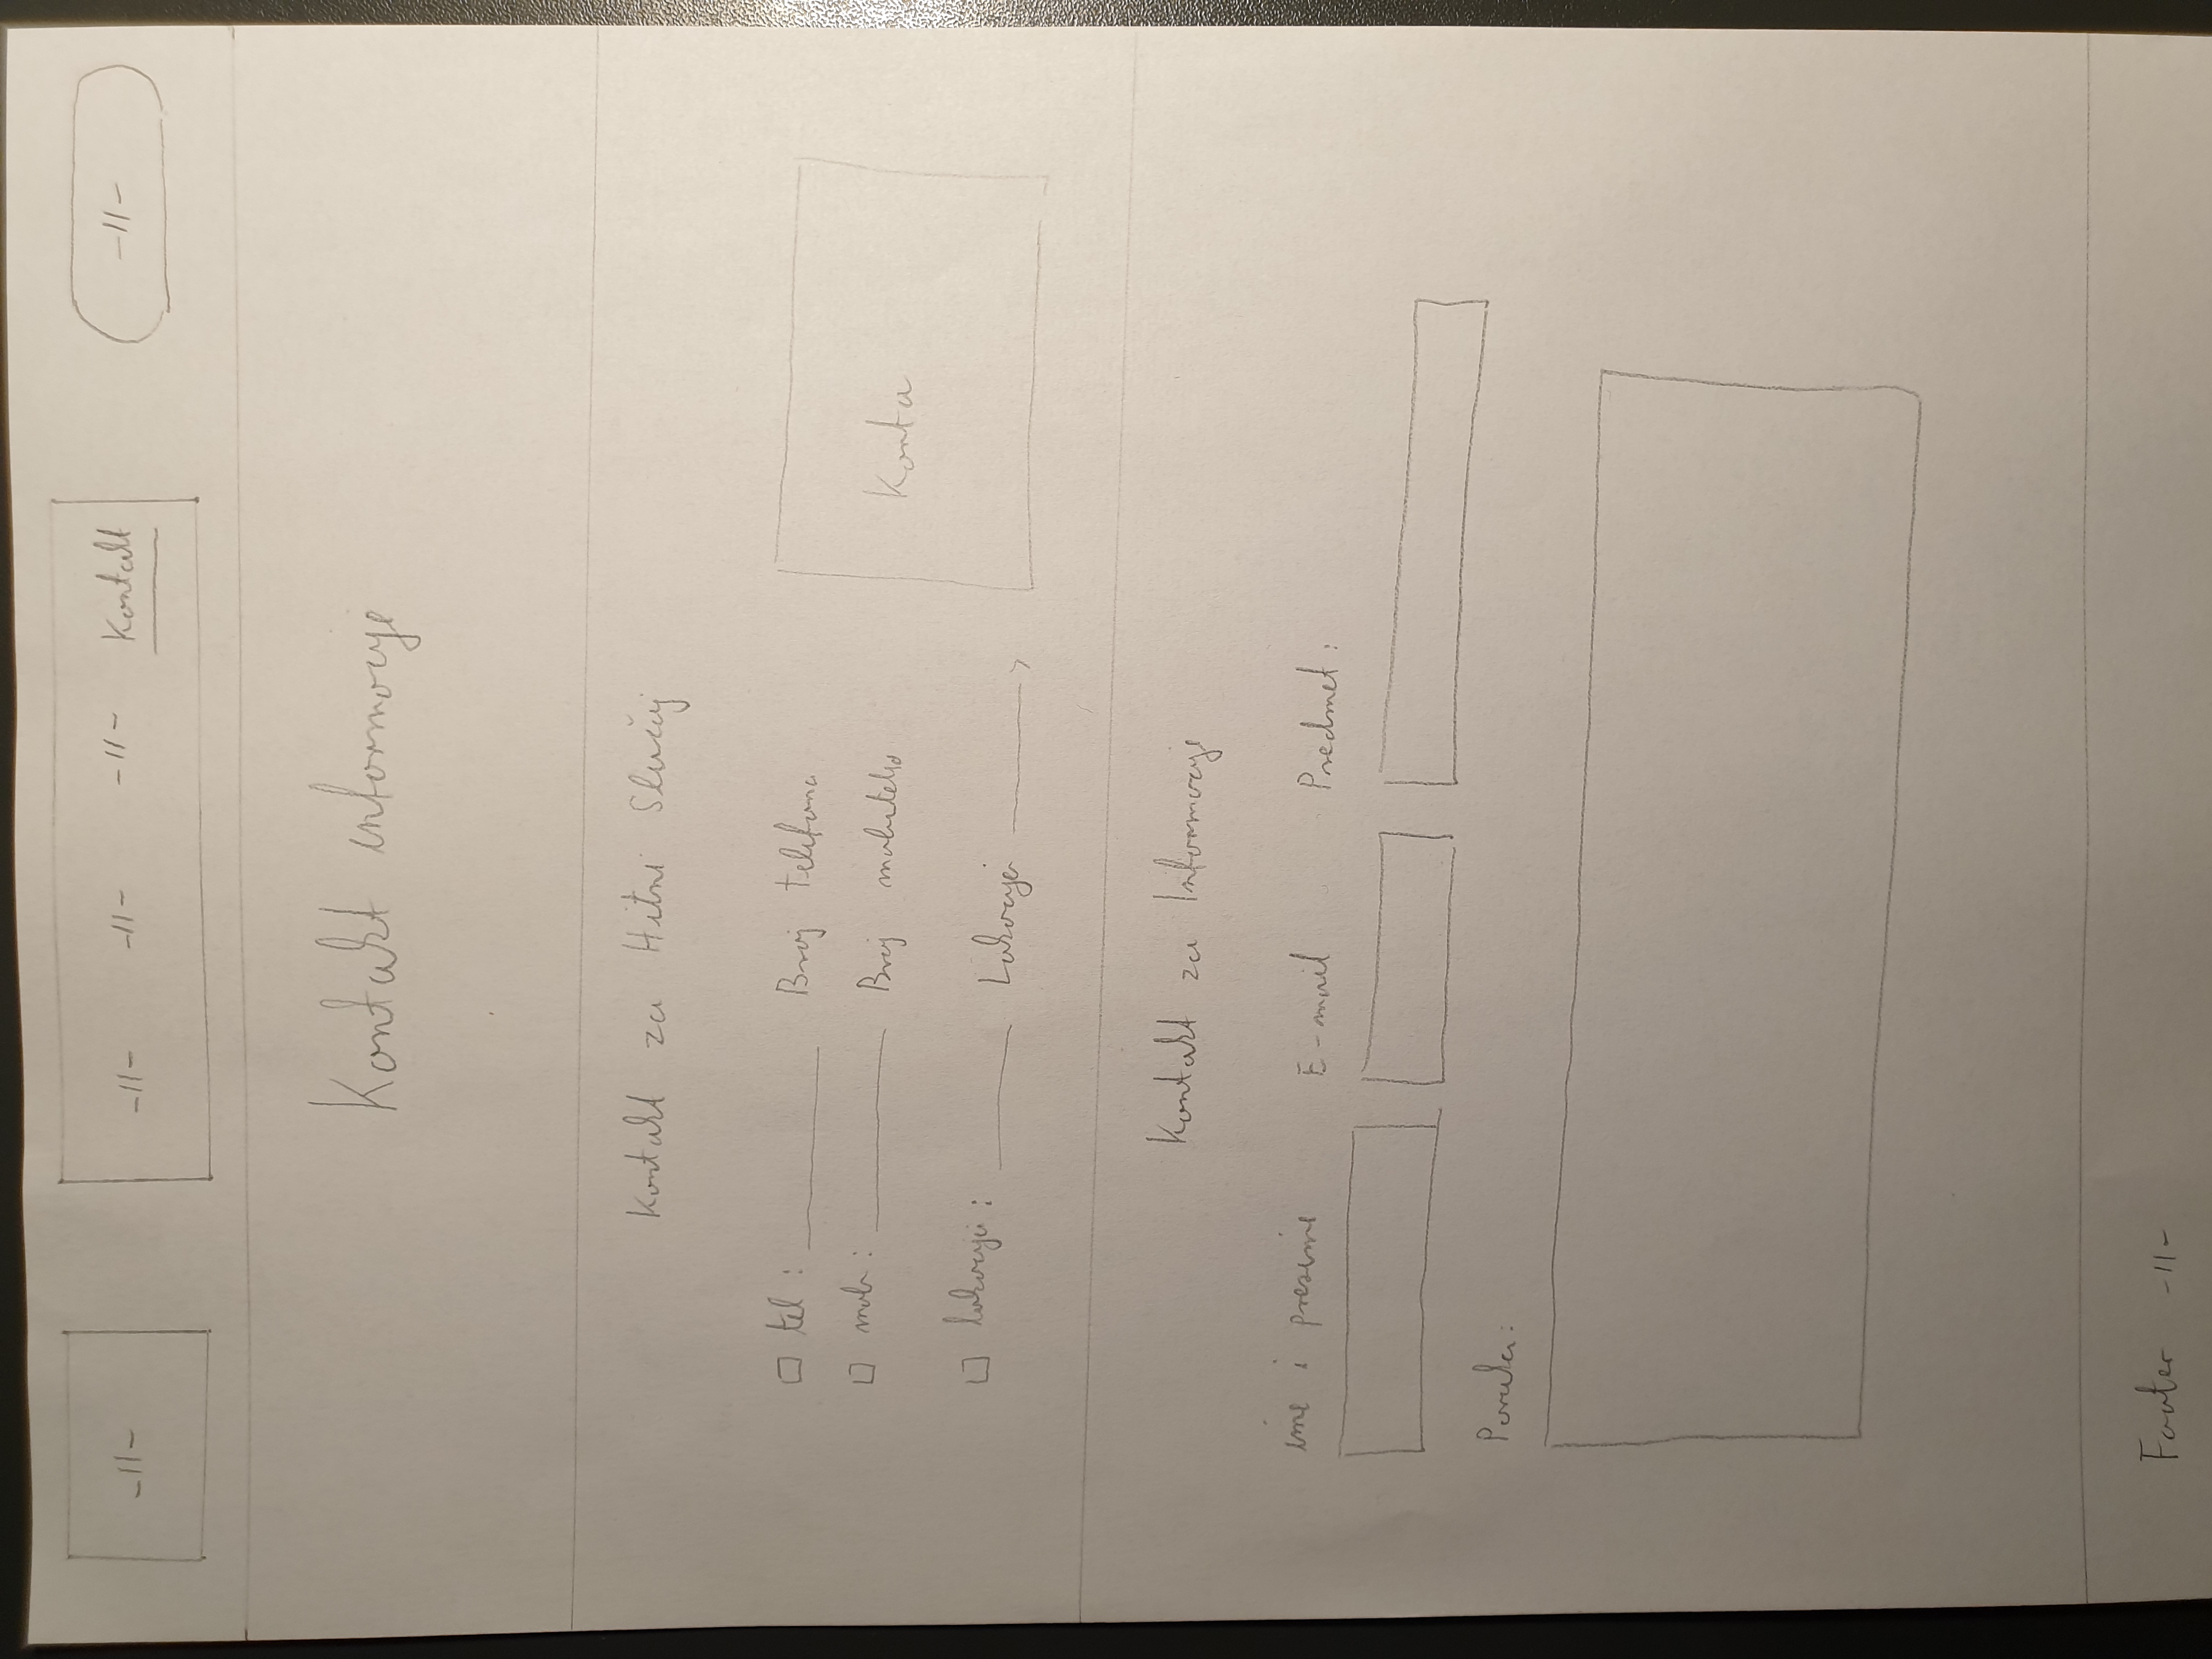 -||-
-||- -||- -||- Kontakt
-||-
Kontakt informacije
Kontakt za Hitni Slučaj
tel : Broj telefona
mob : Broj mobitela
lokacija : Lokacija
Karta
Kontakt za Informacije
ime i prezime E-mail Predmet :
Poruka:
Footer -||-